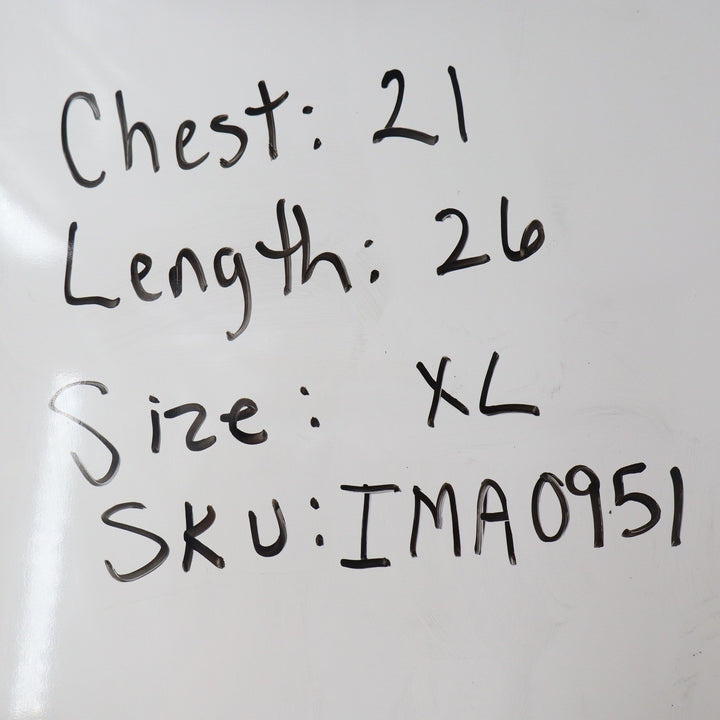 Chest: 21
Length: 26
Size: XL
SKU: IMA0951